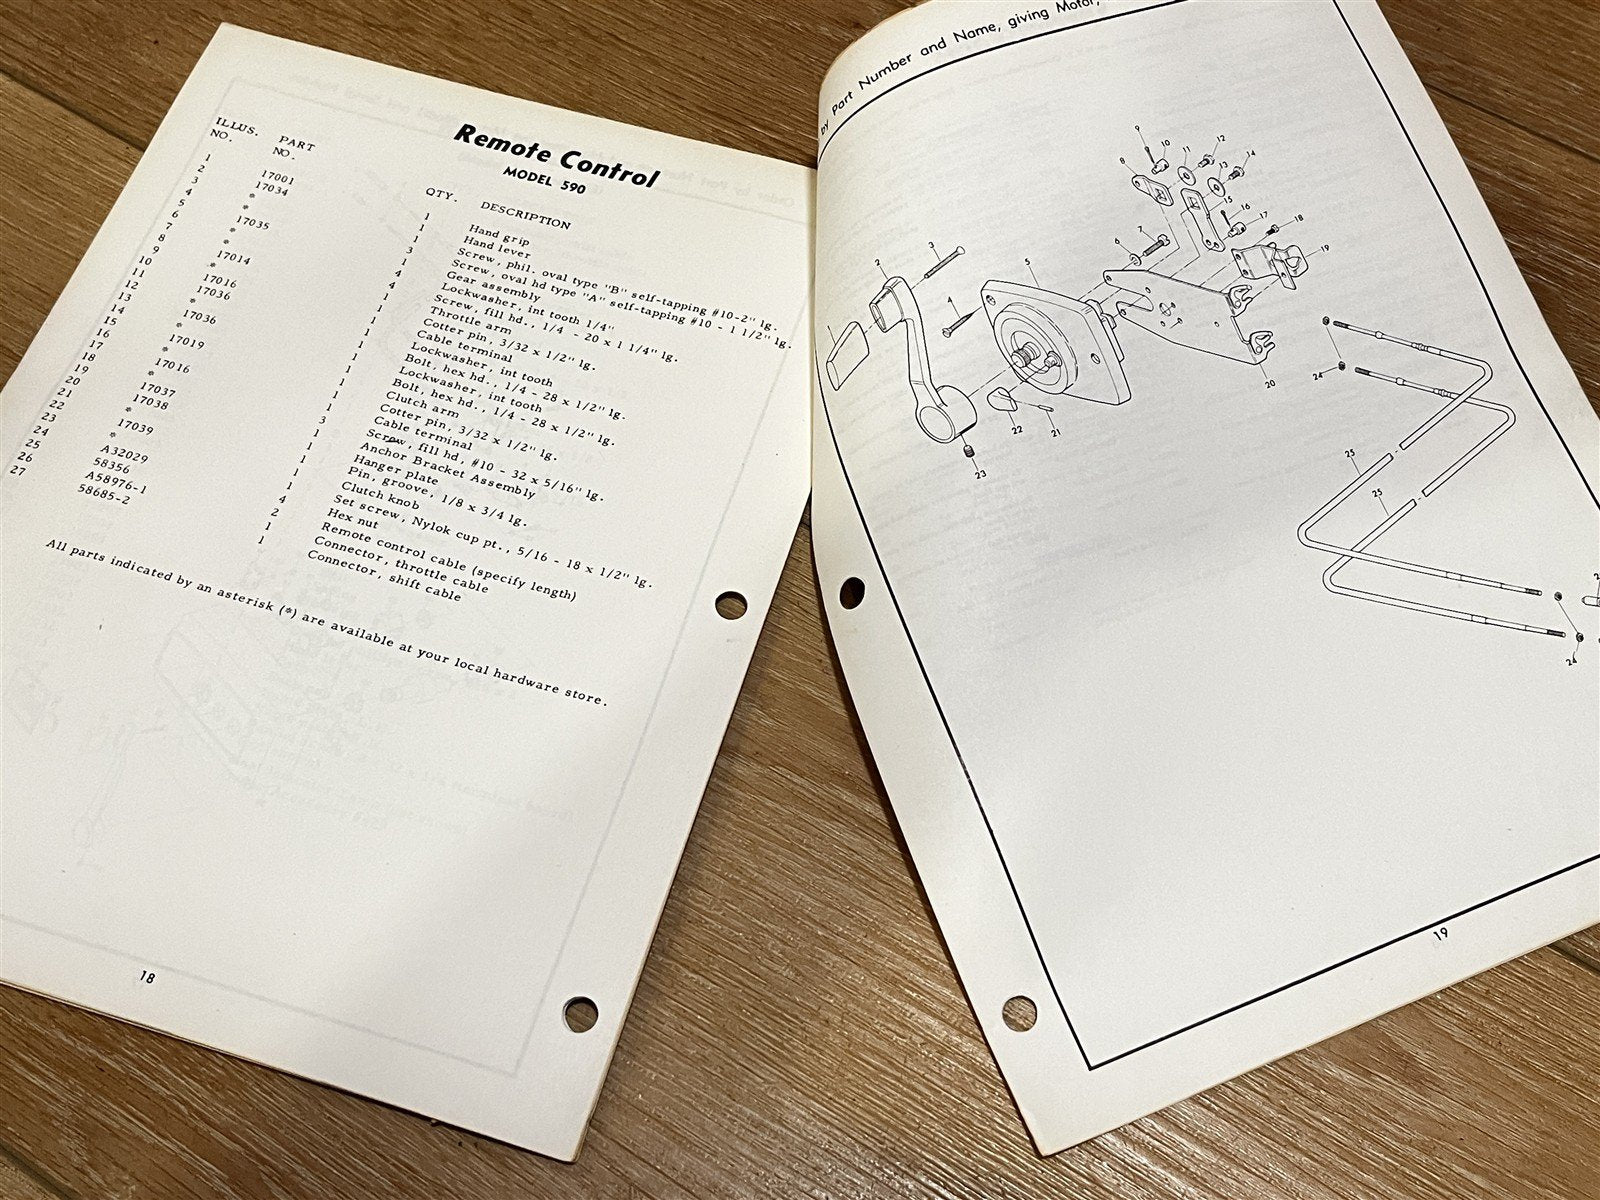 Remote Control
MODEL 590
ILLUS. NO. PART NO. QTY. DESCRIPTION
1 17001 1 Hand grip
2 17034 1 Hand lever
3 * 1 Screw, phil. oval type "B" self-tapping #10-2" lg.
4 * 3 Screw, oval hd type "A" self-tapping #10 - 1 1/2" lg.
5 17035 1 Gear assembly
6 * 4 Lockwasher, int tooth 1/4"
7 * 4 Screw, fill hd., 1/4 - 20 x 1 1/4" lg.
8 17014 1 Throttle arm
9 * 1 Cotter pin, 3/32 x 1/2" lg.
10 17016 1 Cable terminal
11 17036 1 Lockwasher, int tooth
12 * 1 Bolt, hex hd., 1/4 - 28 x 1/2" lg.
13 17036 1 Lockwasher, int tooth
14 * 1 Bolt, hex hd., 1/4 - 28 x 1/2" lg.
15 17019 1 Clutch arm
16 * 1 Cotter pin, 3/32 x 1/2" lg.
17 17016 1 Cable terminal
18 * 3 Screw, fill hd, #10 - 32 x 5/16" lg.
19 17037 1 Anchor Bracket Assembly
20 17038 1 Hanger plate
21 * 1 Pin, groove, 1/8 x 3/4 lg.
22 17039 1 Clutch knob
23 * 1 Set screw, Nylok cup pt., 5/16 - 18 x 1/2" lg.
24 A32029 4 Hex nut
25 58356 2 Remote control cable (specify length)
26 A58976-1 1 Connector, throttle cable
27 58685-2 1 Connector, shift cable
All parts indicated by an asterisk (*) are available at your local hardware store.
18
by Part Number and Name, giving Motor,
1
2
3
4
5
6
7
8
9
10
11
12
13
14
15
16
17
18
19
20
21
22
23
24
25
25
24
19